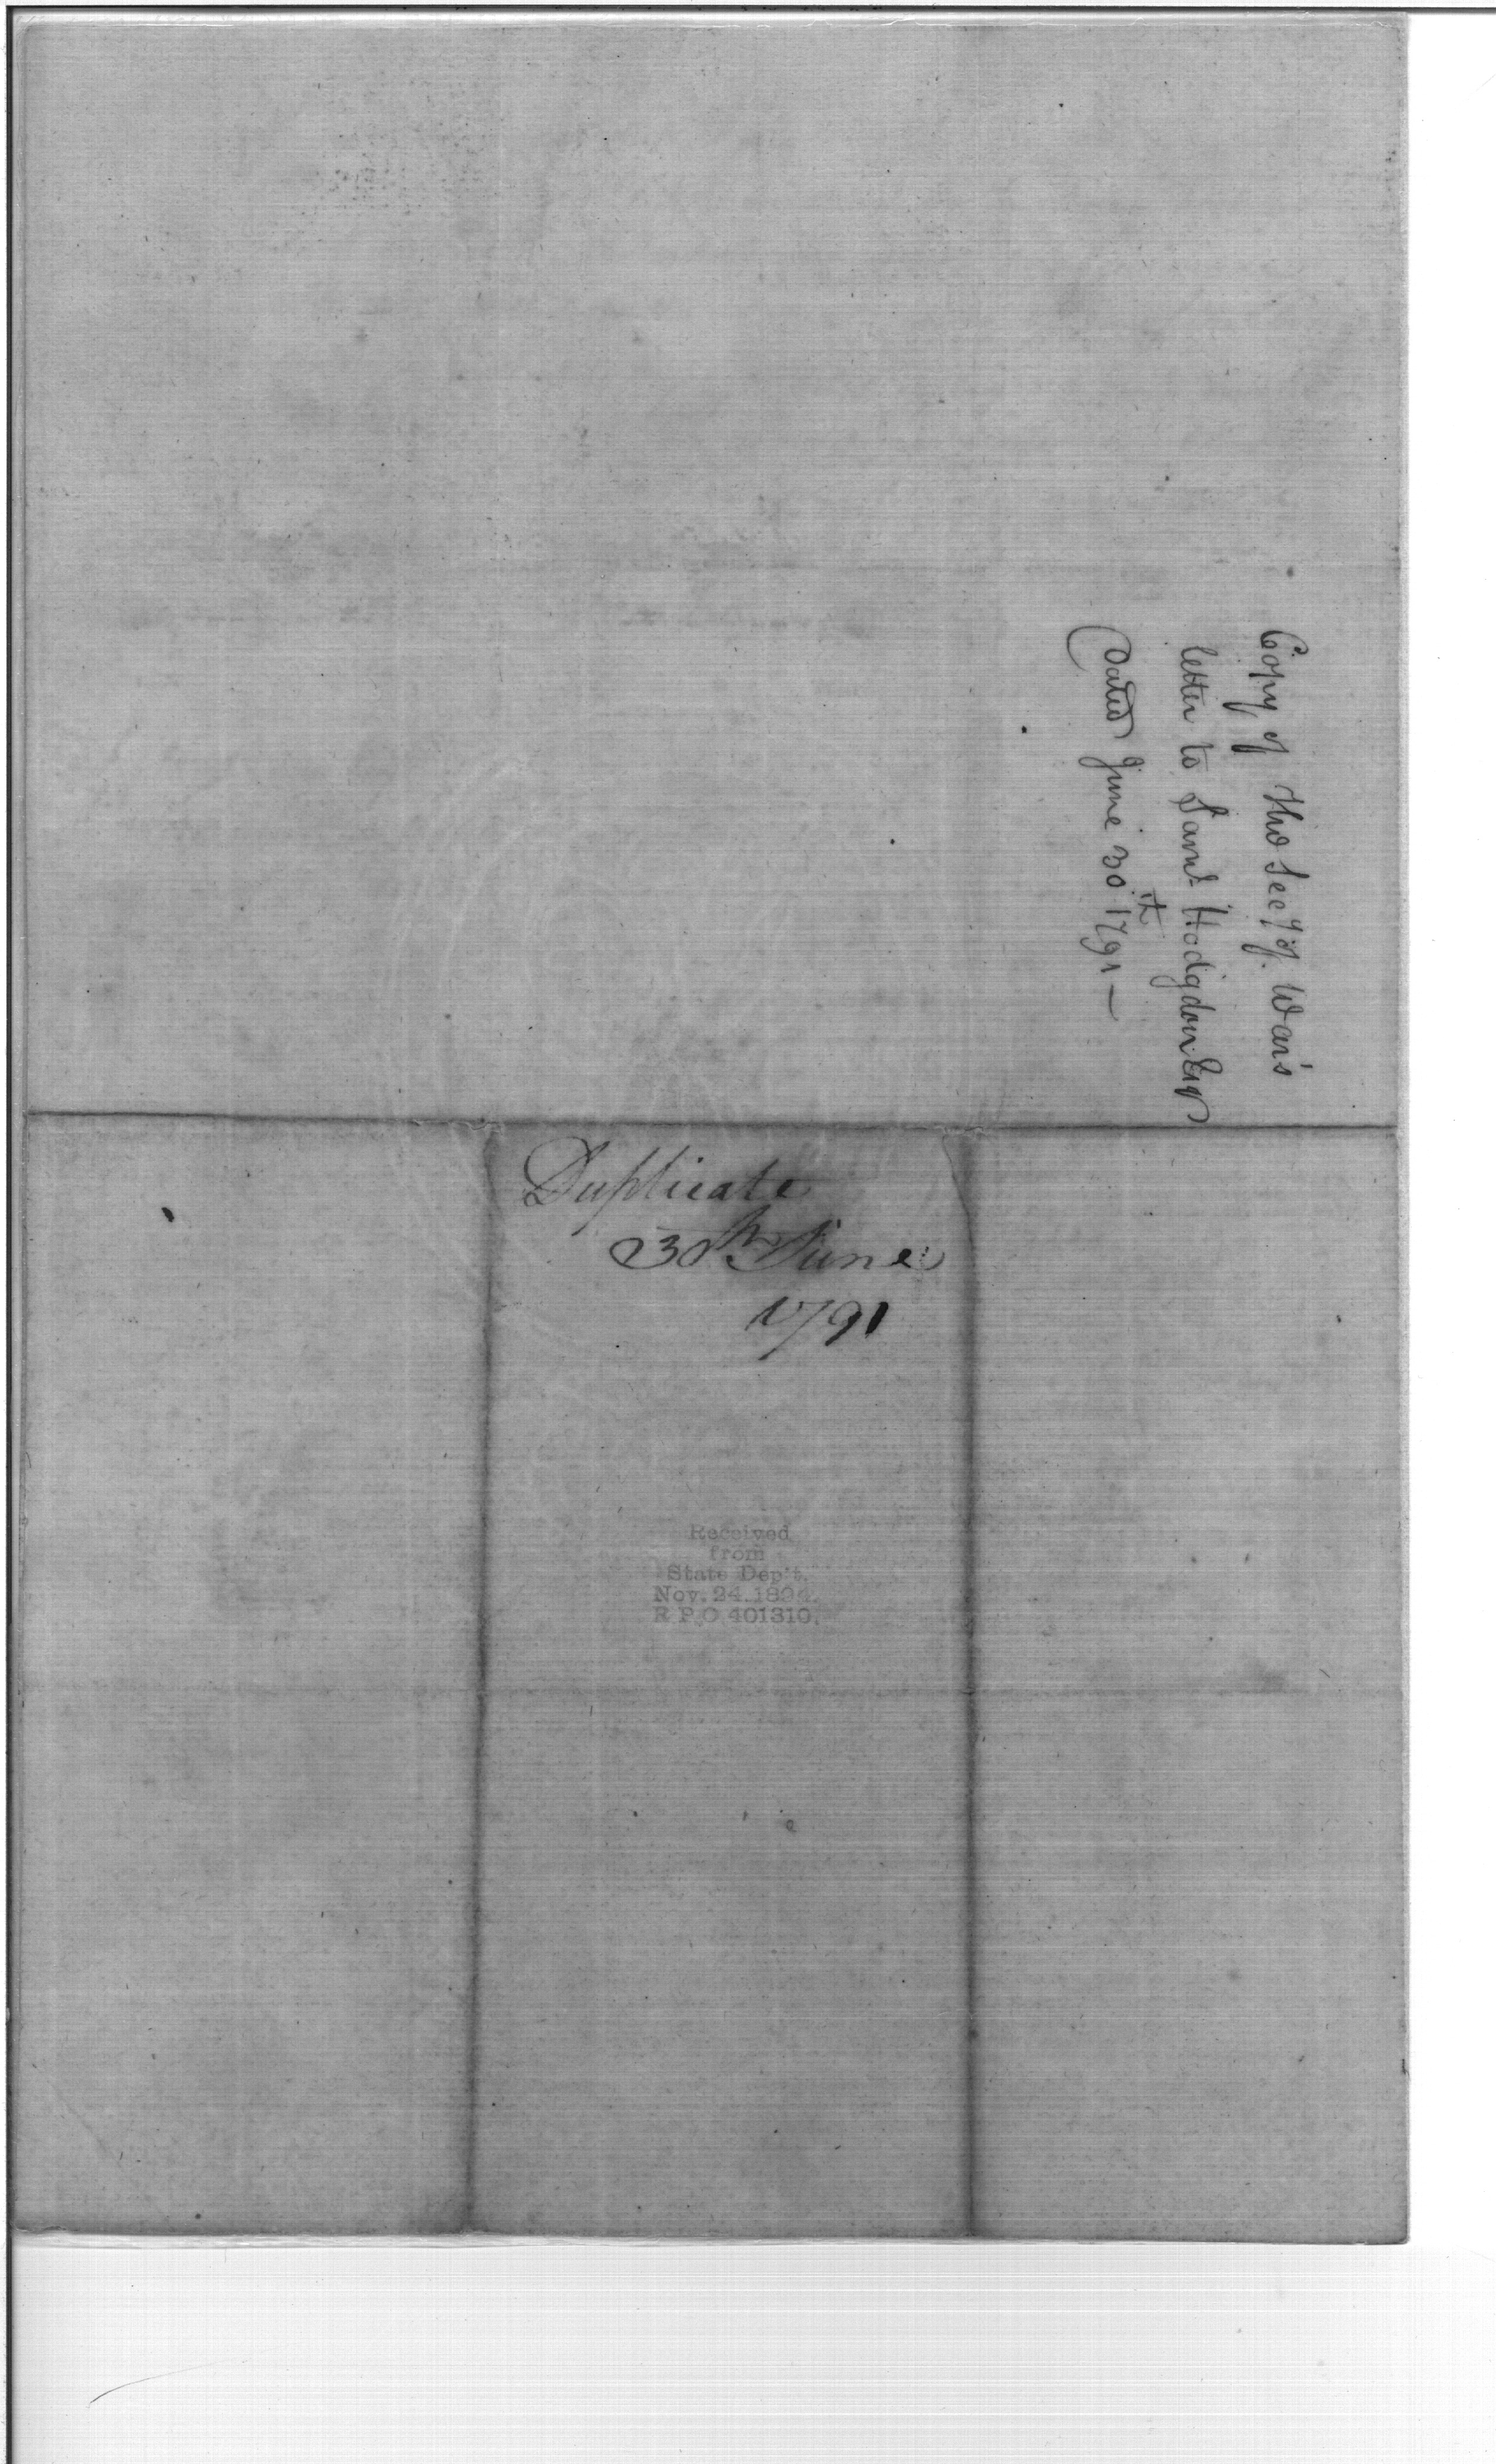 Copy of the Secy of War's
letter to Saml Hodgdon Esqr
Dated June 30th 1791—
Duplicate
30th June
1791
Received
from
State Dep't.
Nov. 24. 1894.
R P O 401310.